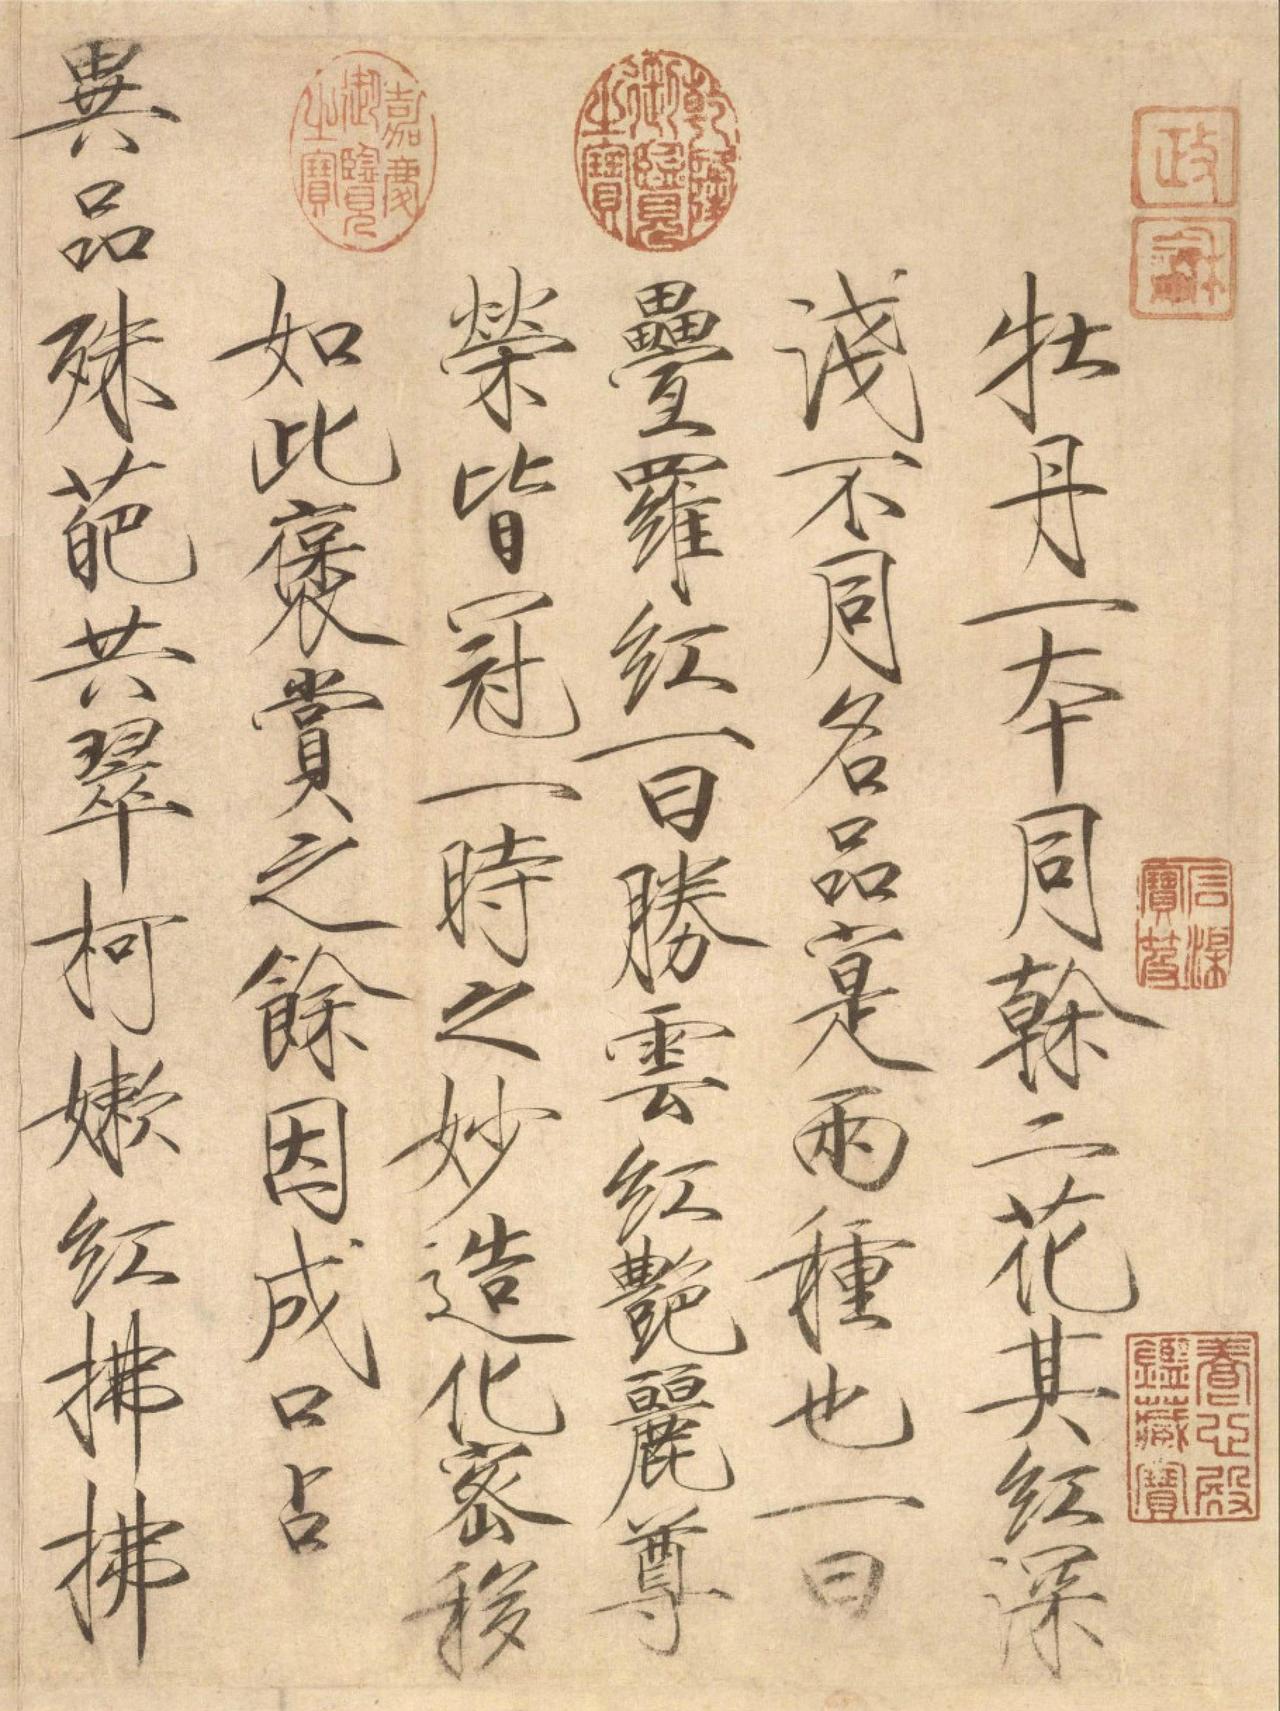 牡丹一本同榦二花其紅深
淺不同名品寔兩種也一曰
疊羅紅一曰勝雲紅豔麗尊
榮皆冠一時之妙造化密移
如此褒賞之餘因成口占
異品殊葩共翠柯嫩紅拂拂
政龢
乾隆御覽之寶
嘉慶御覽之寶
養心殿鑑藏寶